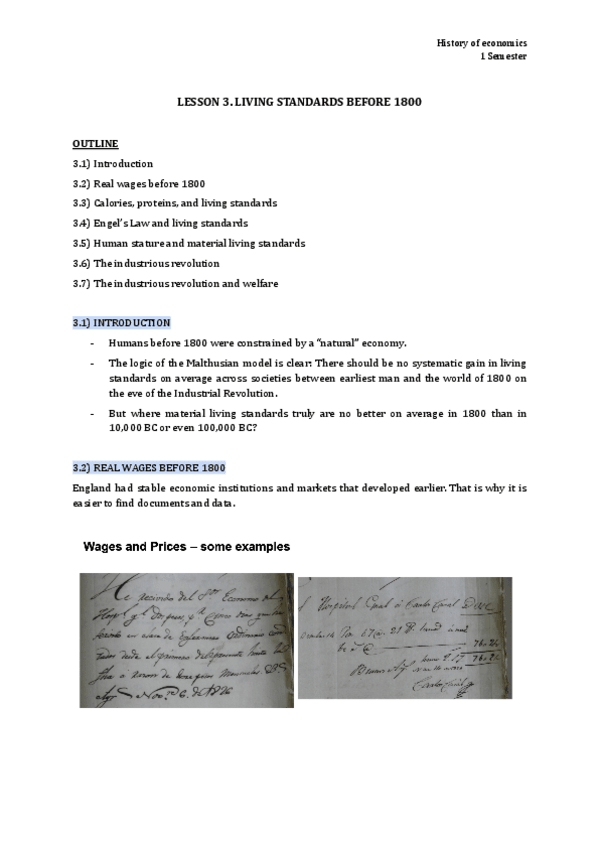 History of economics
1 Semester
LESSON 3. LIVING STANDARDS BEFORE 1800
OUTLINE
3.1) Introduction
3.2) Real wages before 1800
3.3) Calories, proteins, and living standards
3.4) Engel's Law and living standards
3.5) Human stature and material living standards
3.6) The industrious revolution
3.7) The industrious revolution and welfare
3.1) INTRODUCTION
- Humans before 1800 were constrained by a "natural" economy.
- The logic of the Malthusian model is clear: There should be no systematic gain in living
standards on average across societies between earliest man and the world of 1800 on
the eve of the Industrial Revolution.
- But where material living standards truly are no better on average in 1800 than in
10,000 BC or even 100,000 BC?
3.2) REAL WAGES BEFORE 1800
England had stable economic institutions and markets that developed earlier. That is why it is
easier to find documents and data.
Wages and Prices – some examples